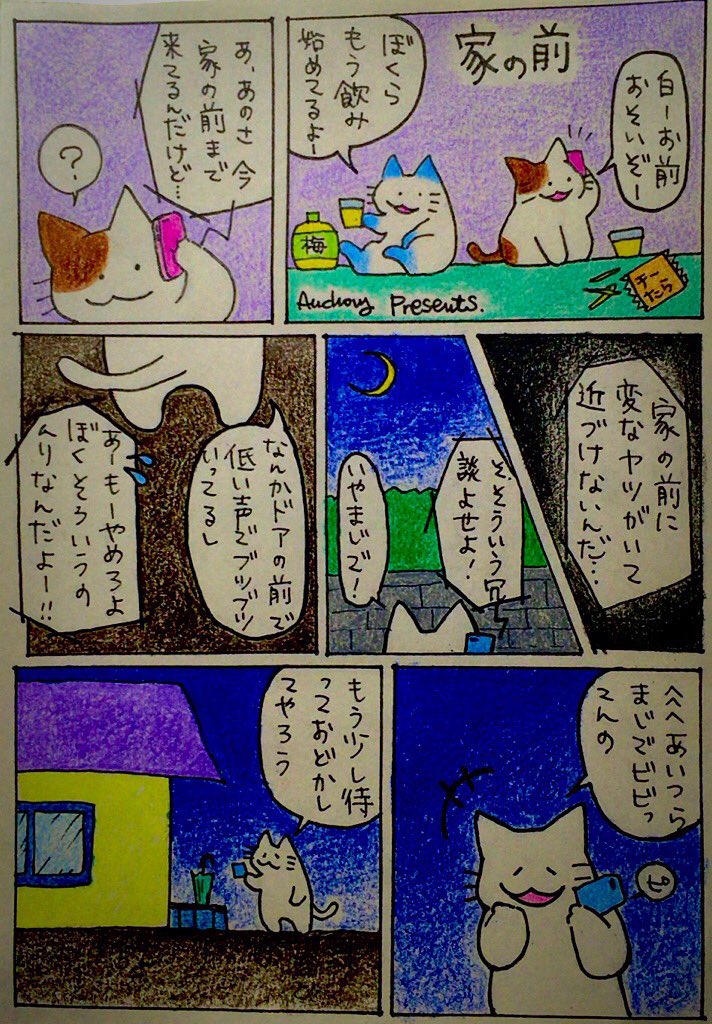 家の前
白ーお前
おそいぞー
ぼくら
もう飲み
始めてるよー
梅
チー
たら
Anchovy Presents.
あ、あのさ 今
家の前まで
来てるんだけど…
?
家の前に
変なヤツがいて
近づけないんだ…
そ、そういう冗
談よせよ!
いやまじで!
なんかドアの前で
低い声でブツブツ
いってるし
あーもーやめろよ
ぼくそういうの
ムリなんだよー!!
へへへあいつら
まじでビビっ
てんの
ピ
もう少し待
っておどかし
てやろう